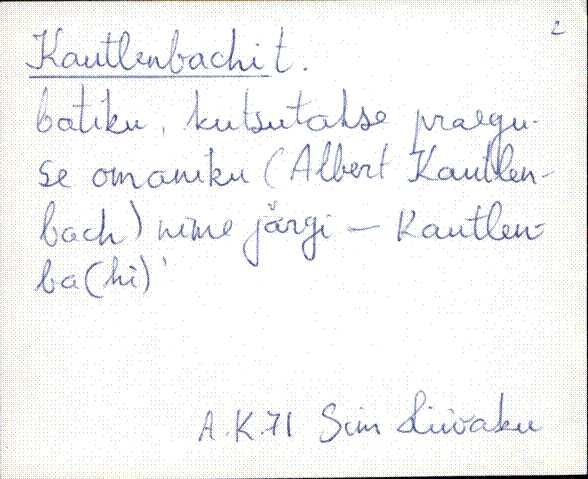 2
Kautlenbachi t.
batiku, kutsutakse praegu-
se omaniku (Albert Kautlen-
bach) nime järgi – Kautlen-
ba(hi)'
A.K.71 Siim Liivaku